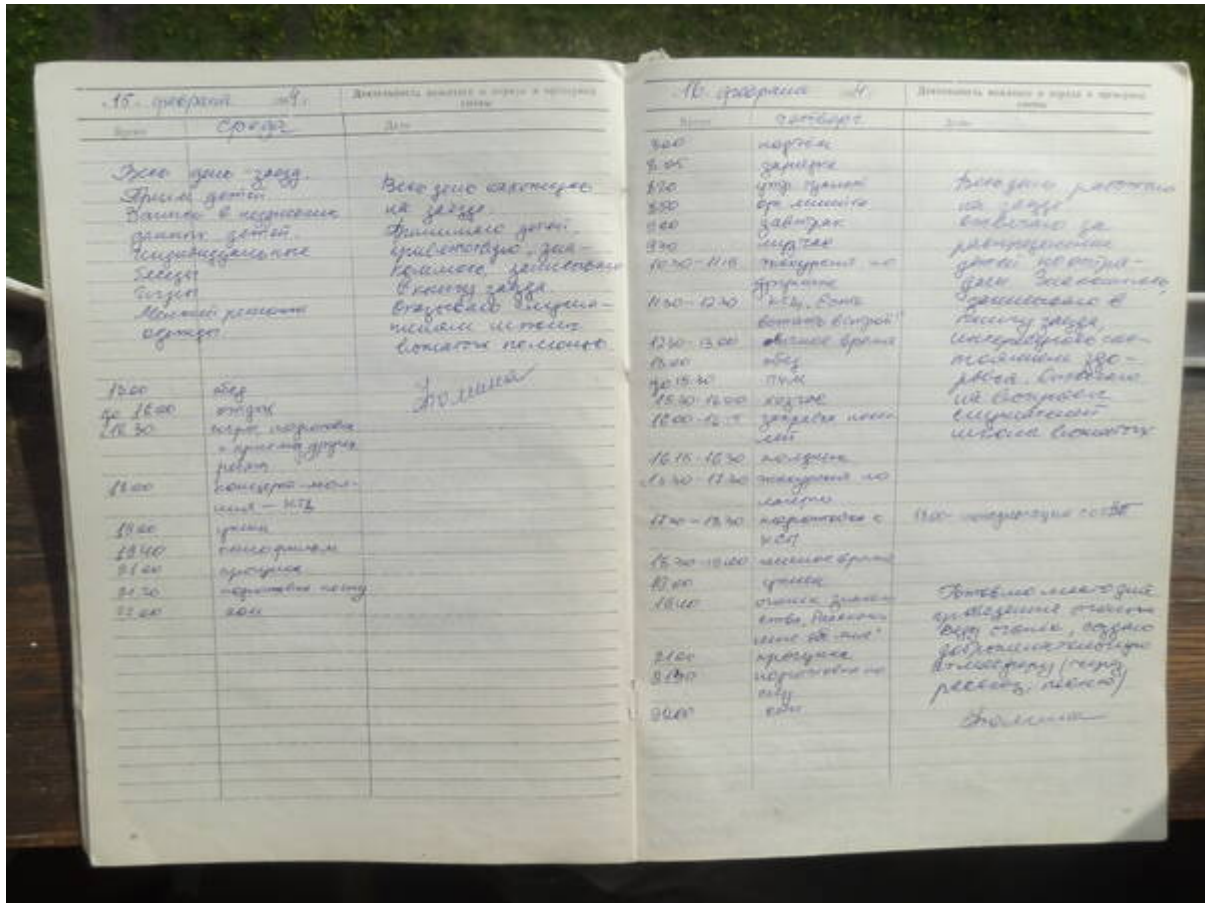 15 февраля
Деятельность вожатого в период и проверка
Время
среда
Дата
Весь день заезд.
Прием детей
Запись в
данных детей.
Индивидуальные
беседы
Игры
Мелкий ремонт
одежды.
Весь день нахожусь
на заезде.
Принимаю детей,
приветствую, зна-
комлюсь, записываю
в книгу заезда
Оказываю
школы
вожатых помощь.
13.00 обед
до 16.00 отдых
16.30 игры, подготовка
к приему других
ребят
18.00 концерт-мол-
ния — КТД
19.00 ужин
19.40 кинофильм
21.00 прогулка
21.30 подготовка ко сну
22.00 сон
16 февраля
Деятельность вожатого в период и проверка
Время
четверг
Дата
8.00 подъём
8.05 зарядка
8.20 утр. туалет
8.50 орг. линейка
9.00 завтрак
9.30
10.30-11.15 экскурсия по
дружине
11.30-12.30 КТД „Есть
встать в строй!“
12.30-13.00 личное время
13.00 обед
до 15.30
15.30-16.00
16.00-16.15 заправка посте-
лей
16.15-16.30 полдник
16.30-17.30 экскурсия по
лагерю
17.30-18.30 подготовка к
18.30-19.00 личное время
19.00 ужин
19.40 огонек знаком-
ства „Расскажи
мне обо мне“
21.00 прогулка
21.30 подготовка ко
сну
22.00 сон
Весь день работаю
на заезде
отвечаю за
распределение
детей по отря-
дам. Знакомлюсь,
записываю в
книгу заезда,
интересуюсь сос-
тоянием здо-
ровья. Отвечаю
на вопросы
слушателей
школы вожатых
13.00 - консультация
Готовлю место для
проведения огонька
Веду огонек, создаю
доброжелательную
атмосферу
рассказ,